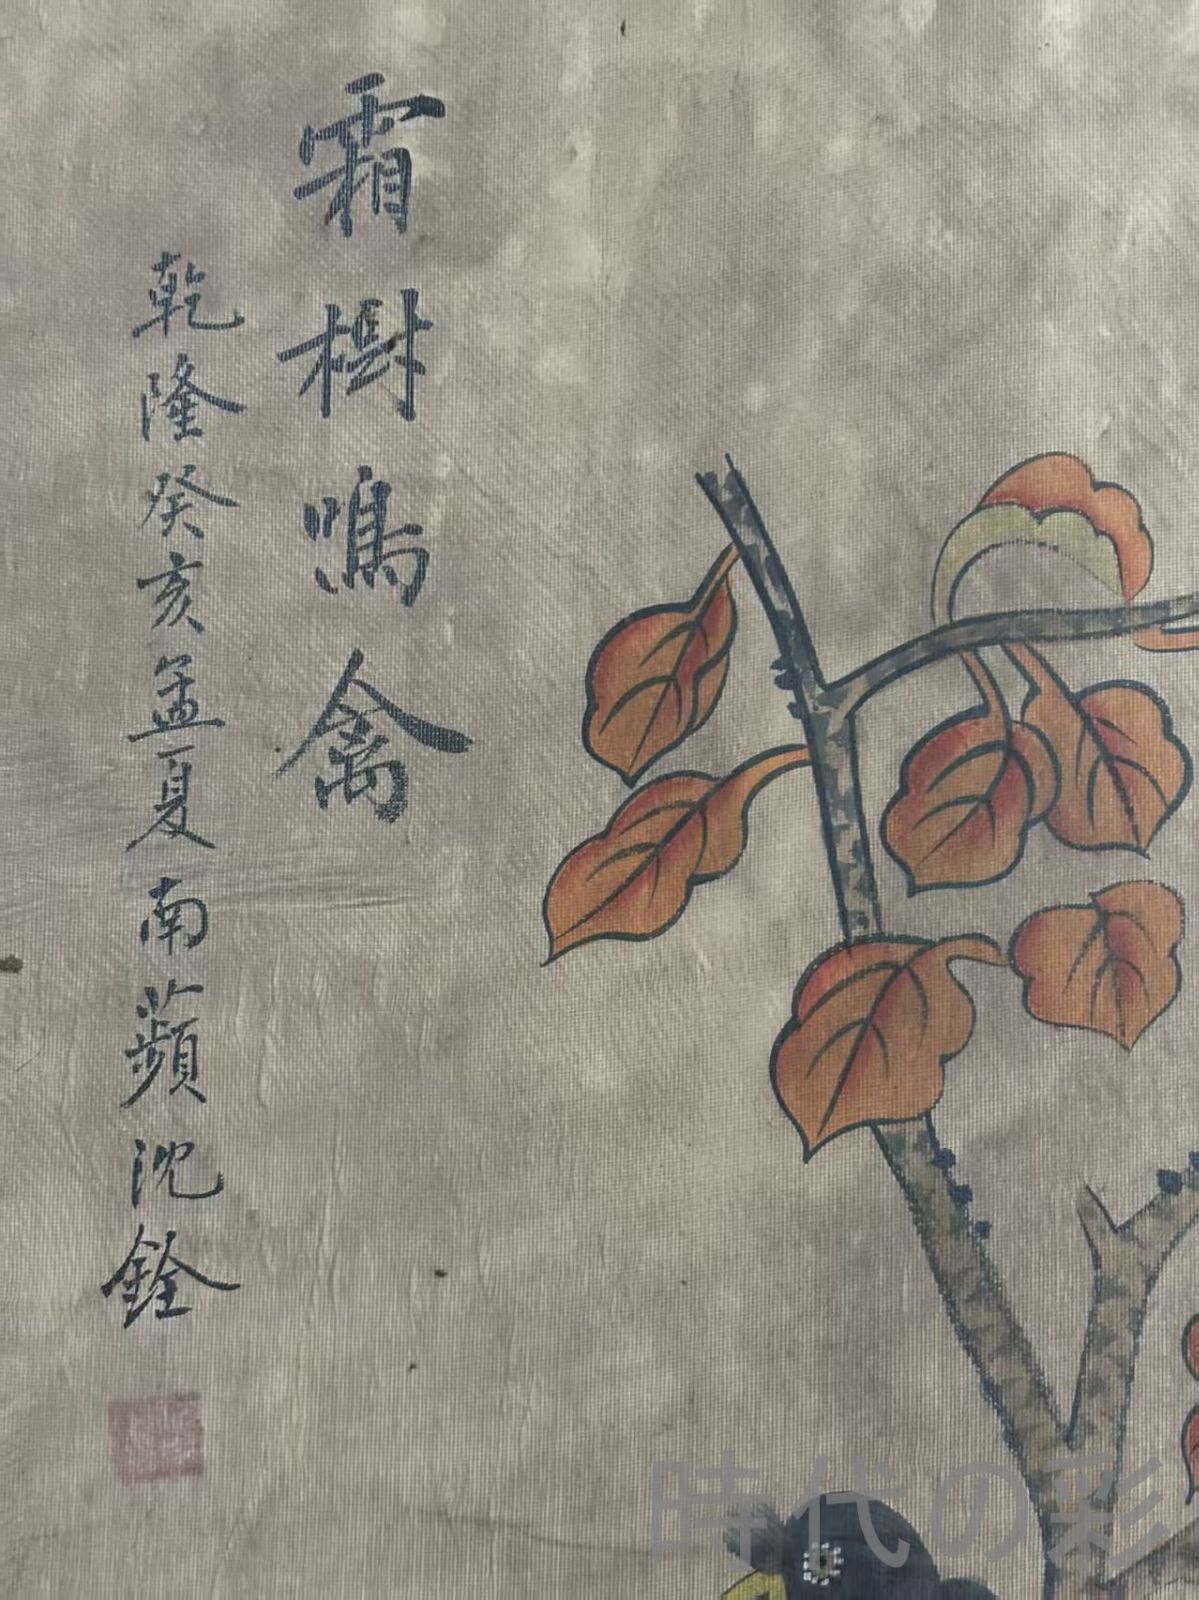 霜樹鳴禽
乾隆癸亥孟夏南蘋沈銓
時代の彩